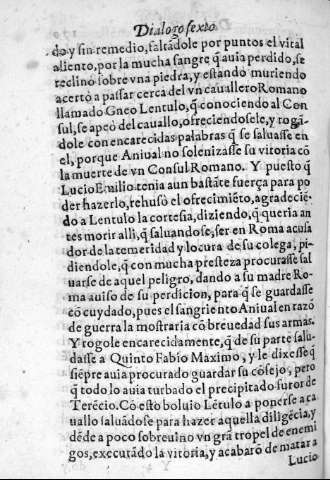 Dialogo sexto
do y sin remedio, faltãdole por puntos el vital
aliento, por la mucha sangre q̃ auia perdido, se
reclinò sobre vna piedra, y estando muriendo
acertò a passar cerca del vn cauallero Romano
llamado Gneo Lentulo, q̃ conociendo al Con
sul, se apeò del cauallo, ofreciendosele, y rogã-
dole con encarecidas palabras q̃ se saluasse en
el, porque Aniual no solenizasse su vitoria cõ
la muerte de vn Consul Romano. Y puesto q̃
Lucio Emilio tenia aun bastãte fuerça para po
der hazerlo, rehusò el ofrecimiẽto, agradecié-
do a Lentulo la cortesia, diziendo, q̃ queria an
tes morir alli, q̃ saluandose, ser en Roma acusa
dor de la temeridad y locura de su colega, pi-
diendole, q̃ con mucha presteza procurasse sal
uarse de aquel peligro, dando a su madre Ro-
ma auiso de su perdicion, para q̃ se guardasse
cõ cuydado, pues el sangriento Aniual en razõ
de guerra la mostraria cõ breuedad sus armas.
Y rogole encarecidamente, q̃ de su parte salu-
dasse a Quinto Fabio Maximo, y le dixesse q̃
siẽpre auia procurado guardar su cõsejo, pero
q̃ todo lo auia turbado el precipitado furor de
Terẽcio. Cõ esto boluio Lẽtulo a ponerse a ca
uallo saluãdose para hazer aquella diligẽcia, y
dẽde a poco sobreuino vn grã tropel de enemi
gos, executãdo la vitoria, y acabarõ de matar a
Lucio